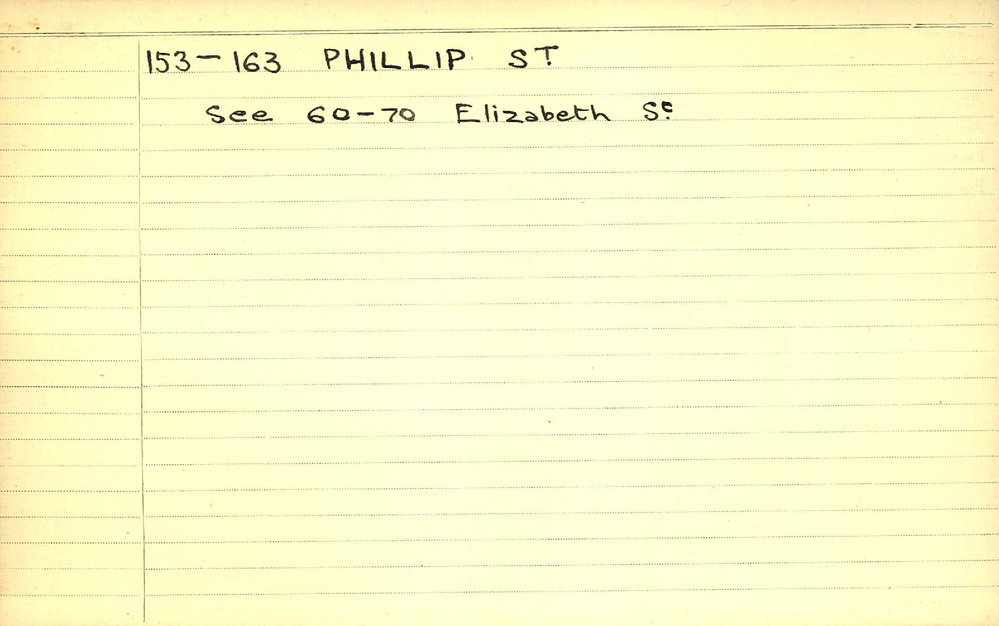 153-163 PHILLIP ST
See 60-70 Elizabeth St.